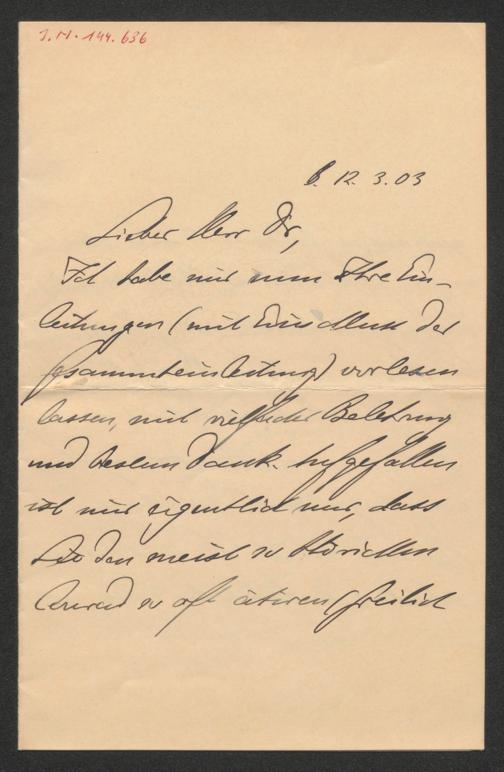 I.N. 144.636
B. 12. 3. 03
Lieber Herr Dr,
Ich habe mir nun Ihre Ein-
leitungen (mit Einschluss der
Gesammteinleitung) vorlesen
lassen, mit vielfacher Belehrung
und bestem Dank. Aufgefallen
ist mir eigentlich nur, dass
Sie den meist so thörichten
Conrad so oft citiren (freilich